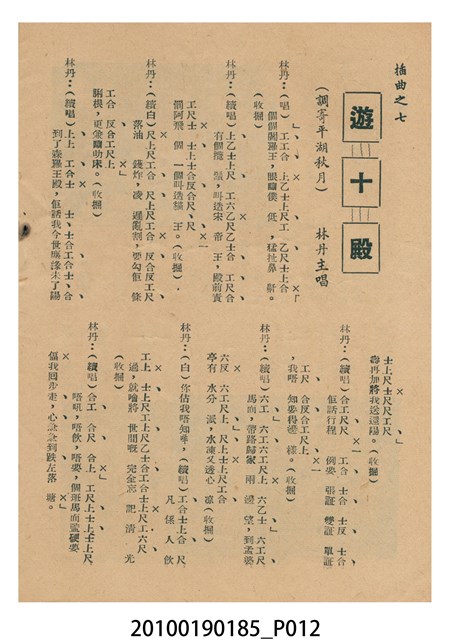 插曲之七
遊十殿
(調寄平湖秋月)
林丹主唱
林丹：(唱)工、工合　上乙士上尺工　乙尺士上合
個個閻羅王，眼矋僕　低，猛扯鼻　鼾。
(收掘)
林丹：(續唱)上乙士上尺　工六乙尺乙士合　工尺合
有個龍　鬚，叫造宋　帝　王，殿前責
工尺士　士士合反合尺、尺
個阿飛　個　一個叫造貓　王。(收掘)，
林丹：(續白)尺上尺工合　尺上尺工合　反合反工尺
落油　鑊炸，凌　遲亂割，要勾佢　條
工合　反合工尺上
脷根，更兼矋叻床。(收掘)
林丹：(續唱)上上　工合士　士、士合工合士、合
到了森羅王殿，佢話我今世應緣未了陽
士上尺上尺尺工尺
壽再加將我送還陽。(收掘)
林丹：(續唱)合工尺尺　工合　士合　士反　士合
佢話行程　例要　張証　雙証　單証
，尺合反合工尺上
，我唔　知要得邊　樣。(收掘)
林丹：(續唱)六工　六工六工尺上　六乙士　六工尺
馬面，帶路歸家　兩　邊　望，到孟婆
六反　六工尺上尺　上上士上尺工合
亭有　水分　派，水凍又透心　凉(收掘)
林丹：(白)你估我唔知尋，(續唱)工合士上合　尺
凡係人飲
工上　士上尺工上尺乙士合工合士上尺工六尺
過，就噲將　世間嘅　完全忘　記　清　光
(收掘)
林丹：(續唱)合工　合尺　合上　工尺上士上士上尺
唔吼，唔飲，唔要，個班馬面硬要
偪我囘步走，心急急到跌左落　塘。
20100190185_P012